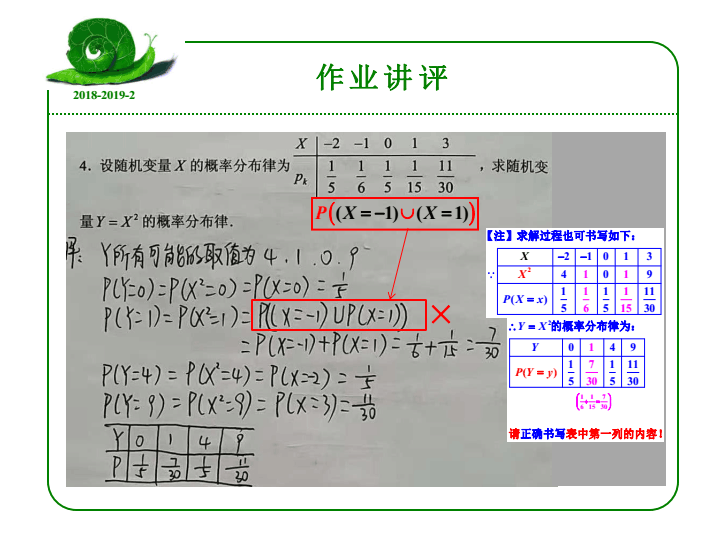 作业讲评
2018-2019-2
4. 设随机变量 X 的概率分布律为 ,求随机变
X -2 -1 0 1 3
p_k 1/5 1/6 1/5 1/15 11/30
量 Y = X² 的概率分布律.
P((X = -1)∪(X = 1))
解: Y所有可能的取值为 4 . 1 . 0 . 9
P(Y=0)=P(X²=0)=P(X=0)=1/5
P(Y=1)=P(X²=1)=P((X=-1)∪P(X=1)) ×
=P(X=-1)+P(X=1)=1/6+1/15=7/30
P(Y=4)=P(X²=4)=P(X=-2)=1/5
P(Y=9)=P(X²=9)=P(X=3)=11/30
Y 0 1 4 9
P 1/5 7/30 1/5 11/30
【注】求解过程也可书写如下:
X -2 -1 0 1 3
∵ X² 4 1 0 1 9
P(X = x) 1/5 1/6 1/5 1/15 11/30
∴ Y = X²的概率分布律为:
Y 0 1 4 9
P(Y = y) 1/5 7/30 1/5 11/30
(1/6+1/15=7/30)
请正确书写表中第一列的内容!